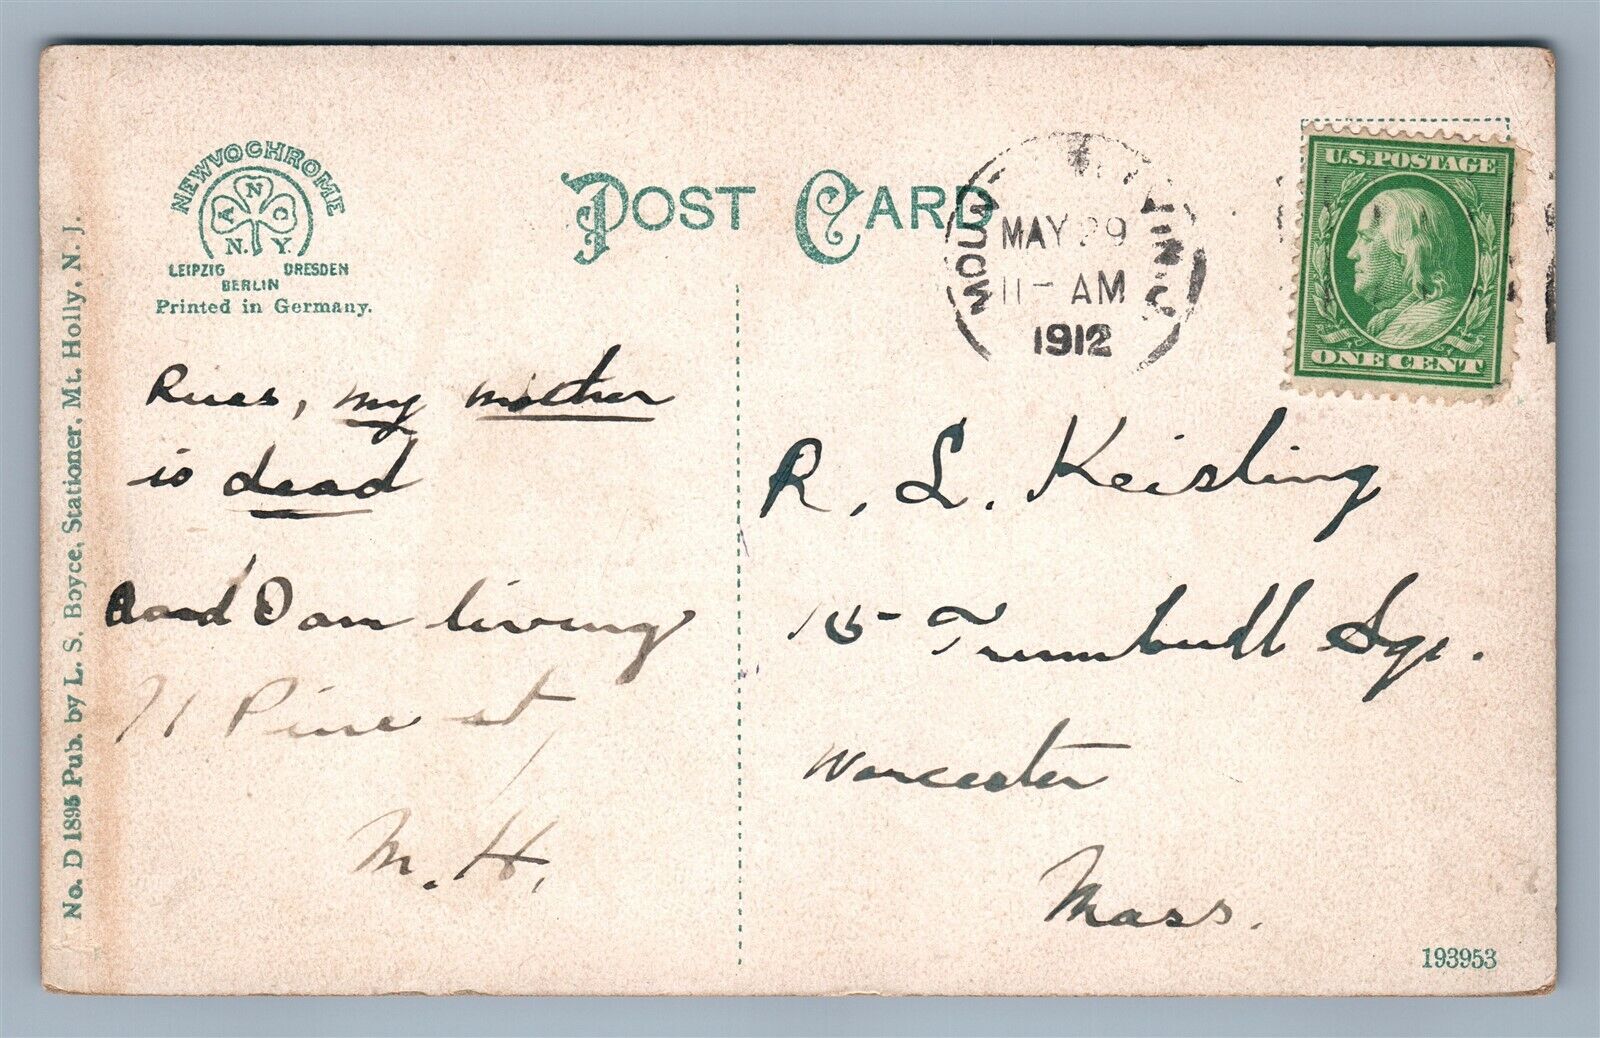 NEWVOCHROME
A N C
N. Y.
LEIPZIG DRESDEN
BERLIN
Printed in Germany.
POST CARD
MAY 29
11 - AM
1912
U.S. POSTAGE
ONE CENT
No. D 1895 Pub. by L. S. Boyce, Stationer, Mt. Holly, N. J.
my mother
is dead
and I am living
71 Pine st
M. H.
R. L. Keisling
15 Trumbull Sq.
Worcester
Mass.
193953